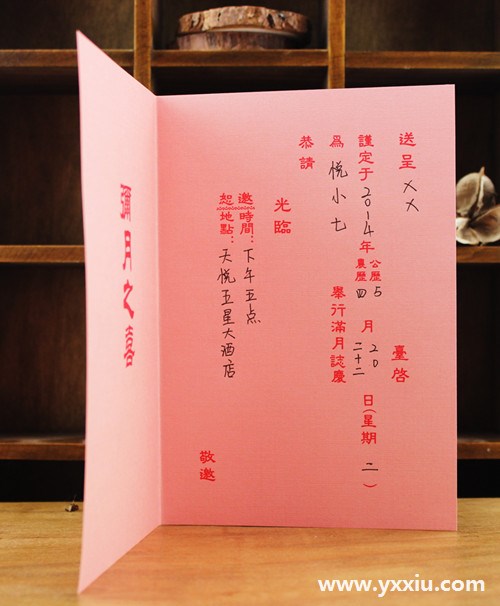 送呈 XX 臺啓
謹定于2014年公歷5農歷四月20二十二日(星期二)
爲 悦小七 舉行滿月誌慶
恭請
光臨
邀時間:下午五点
恕地點:天悦五星大酒店
敬邀
彌月之喜
www.yxxiu.com